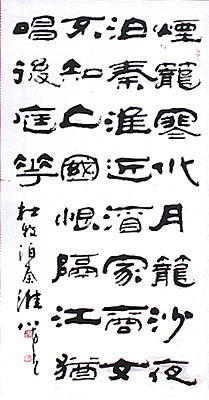 煙籠寒水月籠沙夜
泊秦淮近酒家商女
不知亡國恨隔江猶
唱後庭花
杜牧泊秦淮